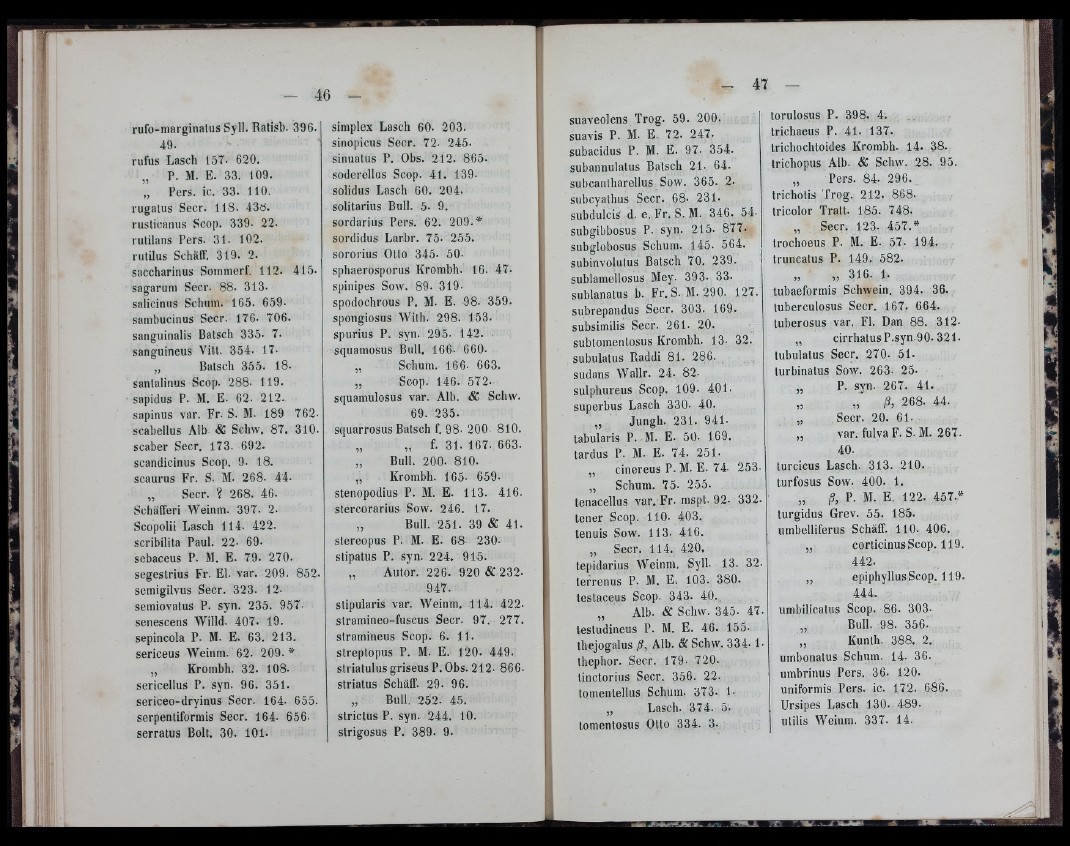 — 46 —
rufo-marginatus Syll. Ratisb. 396.
49.
rufus Lasch 157. 620.
„ P. M. E. 33. 109.
„ Pers. ic. 33. 110.
rugatus Secr. 118. 438.
rusticanus Scop. 339. 22.
rutilans Pers. 31. 102.
rutilus Schäff. 319. 2.
saccharinus Sommerf. 112. 415.
sagarum Secr. 88. 313.
salicinus Schum. 165. 659.
sambucinus Secr. 176. 706.
sanguinalis Batsch 335. 7.
sanguineus Vitt. 354. 17.
„ Batsch 355. 18.
santalinus Scop. 288. 119.
sapidus P. M. E. 62. 212.
sapinus var. Fr. S. M. 189 762.
scabellus Alb & Schw. 87. 310.
scaber Secr. 173. 692.
scandicinus Scop. 9. 18.
scaurus Fr. S. M. 268. 44.
„ Secr. ? 268. 46.
Schäfferi Weinm. 397. 2.
Scopolii Lasch 114. 422.
scribilita Paul. 22. 69.
sebaceus P. M. E. 79. 270.
segestrius Fr. El. var. 209. 852.
semigilvus Secr. 323. 12.
semiovatus P. syn. 235. 957.
senescens Willd. 407. 19.
sepincola P. M. E. 63. 213.
sericeus Weinm. 62. 209. *
„ Krombh. 32. 108.
sericellus P. syn. 96. 351.
sericeo-dryinus Secr. 164. 655.
serpentiformis Secr. 164. 656.
serratus Bolt. 30. 101.
simplex Lasch 60. 203.
sinopicus Secr. 72. 245.
sinuatus P. Obs. 212. 865.
soderellus Scop. 41. 139.
solidus Lasch 60. 204.
solitarius Bull. 5. 9.
sordarius Pers. 62. 209.*
sordidus Larbr. 75. 255.
sororius Otto 345. 50.
sphaerosporus Krombh. 16. 47.
spinipes Sow. 89. 319.
spodochrous P. M. E. 98. 359.
spongiosus With. 298. 153.
spurius P. syn. 295. 142.
squamosus Bull. 166. 660.
„ Schum. 166. 663.
„ Scop. 146. 572.
squamulosus var. Alb. & Schw.
69. 235.
squarrosus Batsch f. 98. 200 810.
„ „ f. 31. 167. 663.
„ Bull. 200. 810.
„ Krombh. 165. 659.
stenopodius P. M. E. 113. 416.
stercorarius Sow. 246. 17.
„ Bull. 251. 39 & 41.
stereopus P. M. E. 68 230.
stipatus P. syn. 224. 915.
„ Autor. 226. 920 & 232.
947.
stipularis var. Weinm. 114. 422.
stramineo-fuscus Secr. 97. 277.
stramineus Scop. 6. 11.
streptopus P. M. E. 120. 449.
striatulus griseus P. Obs. 212. 866.
striatus Schäff. 29. 96.
„ Bull. 252. 45.
strictus P. syn. 244. 10.
strigosus P. 389. 9.
— 47 —
suaveolens Trog. 59. 200.
suavis P. M. E. 72. 247.
subacidus P. M. E. 97. 354.
subannulatus Batsch 21. 64.
subcantharellus Sow. 365. 2.
subcyathus Secr. 68. 231.
subdulcis d. e. Fr. S. M. 346. 54.
subgibbosus P. syn. 215. 877.
subglobosus Schum. 145. 564.
subinvolutus Batsch 70. 239.
sublamellosus Mey. 393. 33.
sublanatus b. Fr. S. M. 290. 127.
subrepandus Secr. 303. 169.
subsimilis Secr. 261. 20.
subtomentosus Krombh. 13. 32.
subulatus Raddi 81. 286.
sudans Wallr. 24. 82.
sulphureus Scop. 109. 401.
superbus Lasch 330. 40.
„ Jungh. 231. 941.
tabularis P. M. E. 50. 169.
tardus P. M. E. 74. 251.
„ cinereus P. M. E. 74. 253.
„ Schum. 75. 255.
tenacellus var. Fr. mspt. 92. 332.
tener Scop. 110. 403.
tenuis Sow. 113. 416.
„ Secr. 114. 420.
tepidarius Weinm. Syll. 13. 32.
terrenus P. M. E. 103. 380.
testaceus Scop. 343. 40.
„ Alb. & Schw. 345. 47.
testudineus P. M. E. 46. 155.
thejogalus β, Alb. & Schw. 334. 1.
thephor. Secr. 179. 720.
tinctorius Secr. 356. 22.
tomentellus Schum. 373. 1.
„ Lasch. 374. 5.
tomentosus Otto 334. 3.
torulosus P. 398. 4.
trichaeus P. 41. 137.
trichochtoides Krombh. 14. 38.
trichopus Alb. & Schw. 28. 95.
„ Pers. 84. 296.
tricholis Trog. 212. 868.
tricolor Tratt. 185. 748.
„ Secr. 123. 457.*
trochoeus P. M. E. 57. 194.
truncatus P. 149. 582.
„ „ 316. 1.
tubaeformis Schwein. 394. 36.
tuberculosus Secr. 167. 664.
tuberosus var. Fl. Dan 88. 312.
„ cirrhatus P. syn. 90. 321.
tubulatus Secr. 270. 51.
turbinatus Sow. 263. 25.
„ P. syn. 267. 41.
„ „ β, 268. 44.
„ Secr. 20. 61.
„ var. fulva F. S. M. 267.
40.
turcicus Lasch. 313. 210.
turfosus Sow. 400. 1.
„ β, P. M. E. 122. 457.*
turgidus Grev. 55. 185.
umbelliferus Schäff. 110. 406.
„ corticinus Scop. 119.
442.
„ epiphyllus Scop. 119.
444.
umbilicatus Scop. 86. 303.
„ Bull. 98. 356.
„ Kunth. 388. 2.
umbonatus Schum. 14. 36.
umbrinus Pers. 36. 120.
uniformis Pers. ic. 172. 686.
Ursipes Lasch 130. 489.
utilis Weinm. 337. 14.